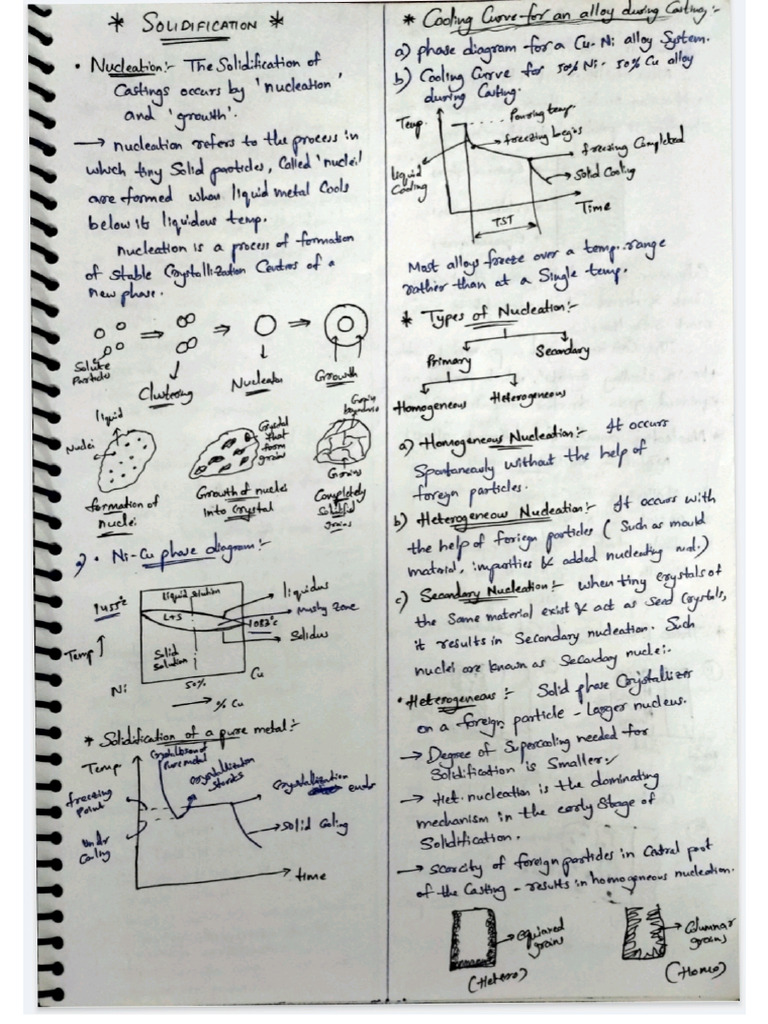 * SOLIDIFICATION *
• Nucleation:- The Solidification of
Castings occurs by 'nucleation'
and 'growth'.
→ nucleation refers to the process in
which tiny Solid particles, Called 'nuclei'
are formed when liquid metal Cools
below its liquidous temp.
nucleation is a process of formation
of Stable Crystallization Centres of a
new phase.
Solute
Particle
Clustering
Nucleation
Growth
liquid
Nuclei
formation of
nuclei
Crystal
that
form
grain
Growth of nuclei
into Crystal
Grain
boundaries
Grains
Completely
Solidified
grains
a) • Ni-Cu phase diagram:-
1455°c
Temp ↑
liquid solution
L+S
Solid
Solution
liquidus
Mushy Zone
1083°c
Solidus
Ni
50%
Cu
→ % Cu
* Solidification of a pure metal:-
Temp
freezing
Point
Under
Cooling
pure metal
crystallization
starts
Crystallization ends
Solid Coling
time
* Cooling Curve for an alloy during Casting:-
a) phase diagram for a Cu-Ni alloy System.
b) Cooling Curve for 50% Ni - 50% Cu alloy
during Casting.
Temp.
Pouring temp.
freezing begins
freezing Completed
Solid Coling
liquid
Cooling
Time
TST
Most alloys freeze over a temp. range
rather than at a Single temp.
* Types of Nucleation:-
Primary
Secondary
Homogeneous
Heterogeneous
a) Homogeneous Nucleation:- It occurs
Spontaneously without the help of
foreign particles.
b) Heterogeneous Nucleation:- It occurs with
the help of foriegn particles ( Such as mould
material, impurities & added nucleating mat.)
c) Secondary Nucleation:- when tiny crystals of
the Same material exist & act as Seed Crystals,
it results in Secondary nucleation. Such
nuclei are known as Secondary nuclei.
• Heterogeneous:- Solid phase Crystallizes
on a foreign particle - Larger nucleus.
→ Degree of Supercooling needed for
Solidification is Smaller.
→ Het. nucleation is the dominating
mechanism in the early Stage of
Solidification.
→ Scarcity of foreign particles in Central part
of the Casting - results in homogeneous nucleation.
equiaxed
grains
(Hetero)
Columnar
grains
(Homo)